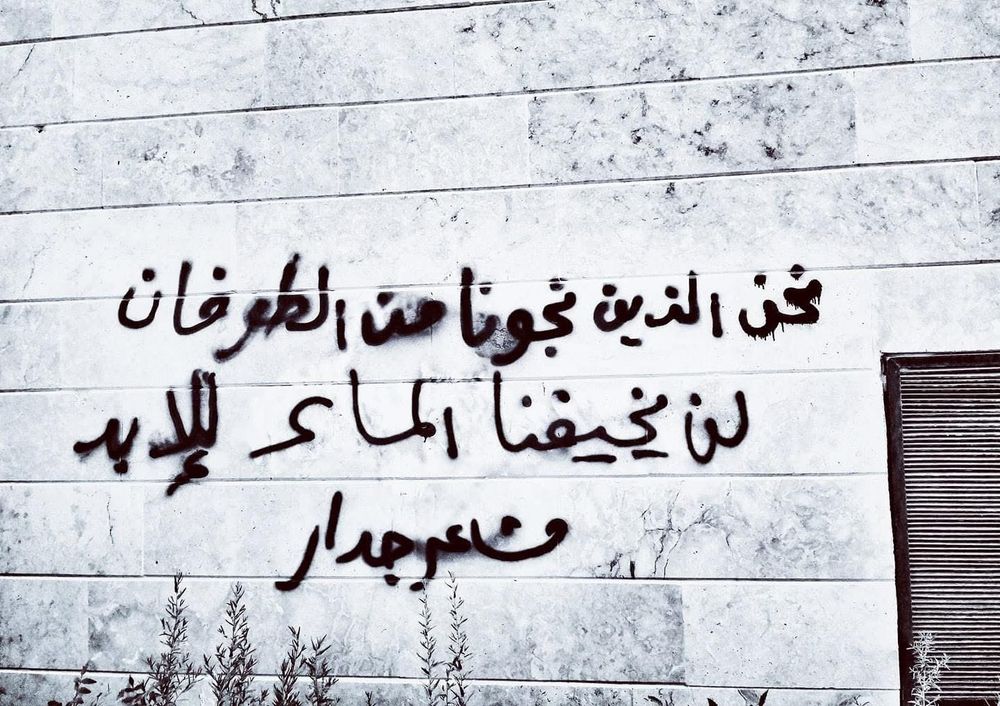 نحن الذين نجونا من الطوفان
لن يخيفنا الماء للابد
مشاعر جدار